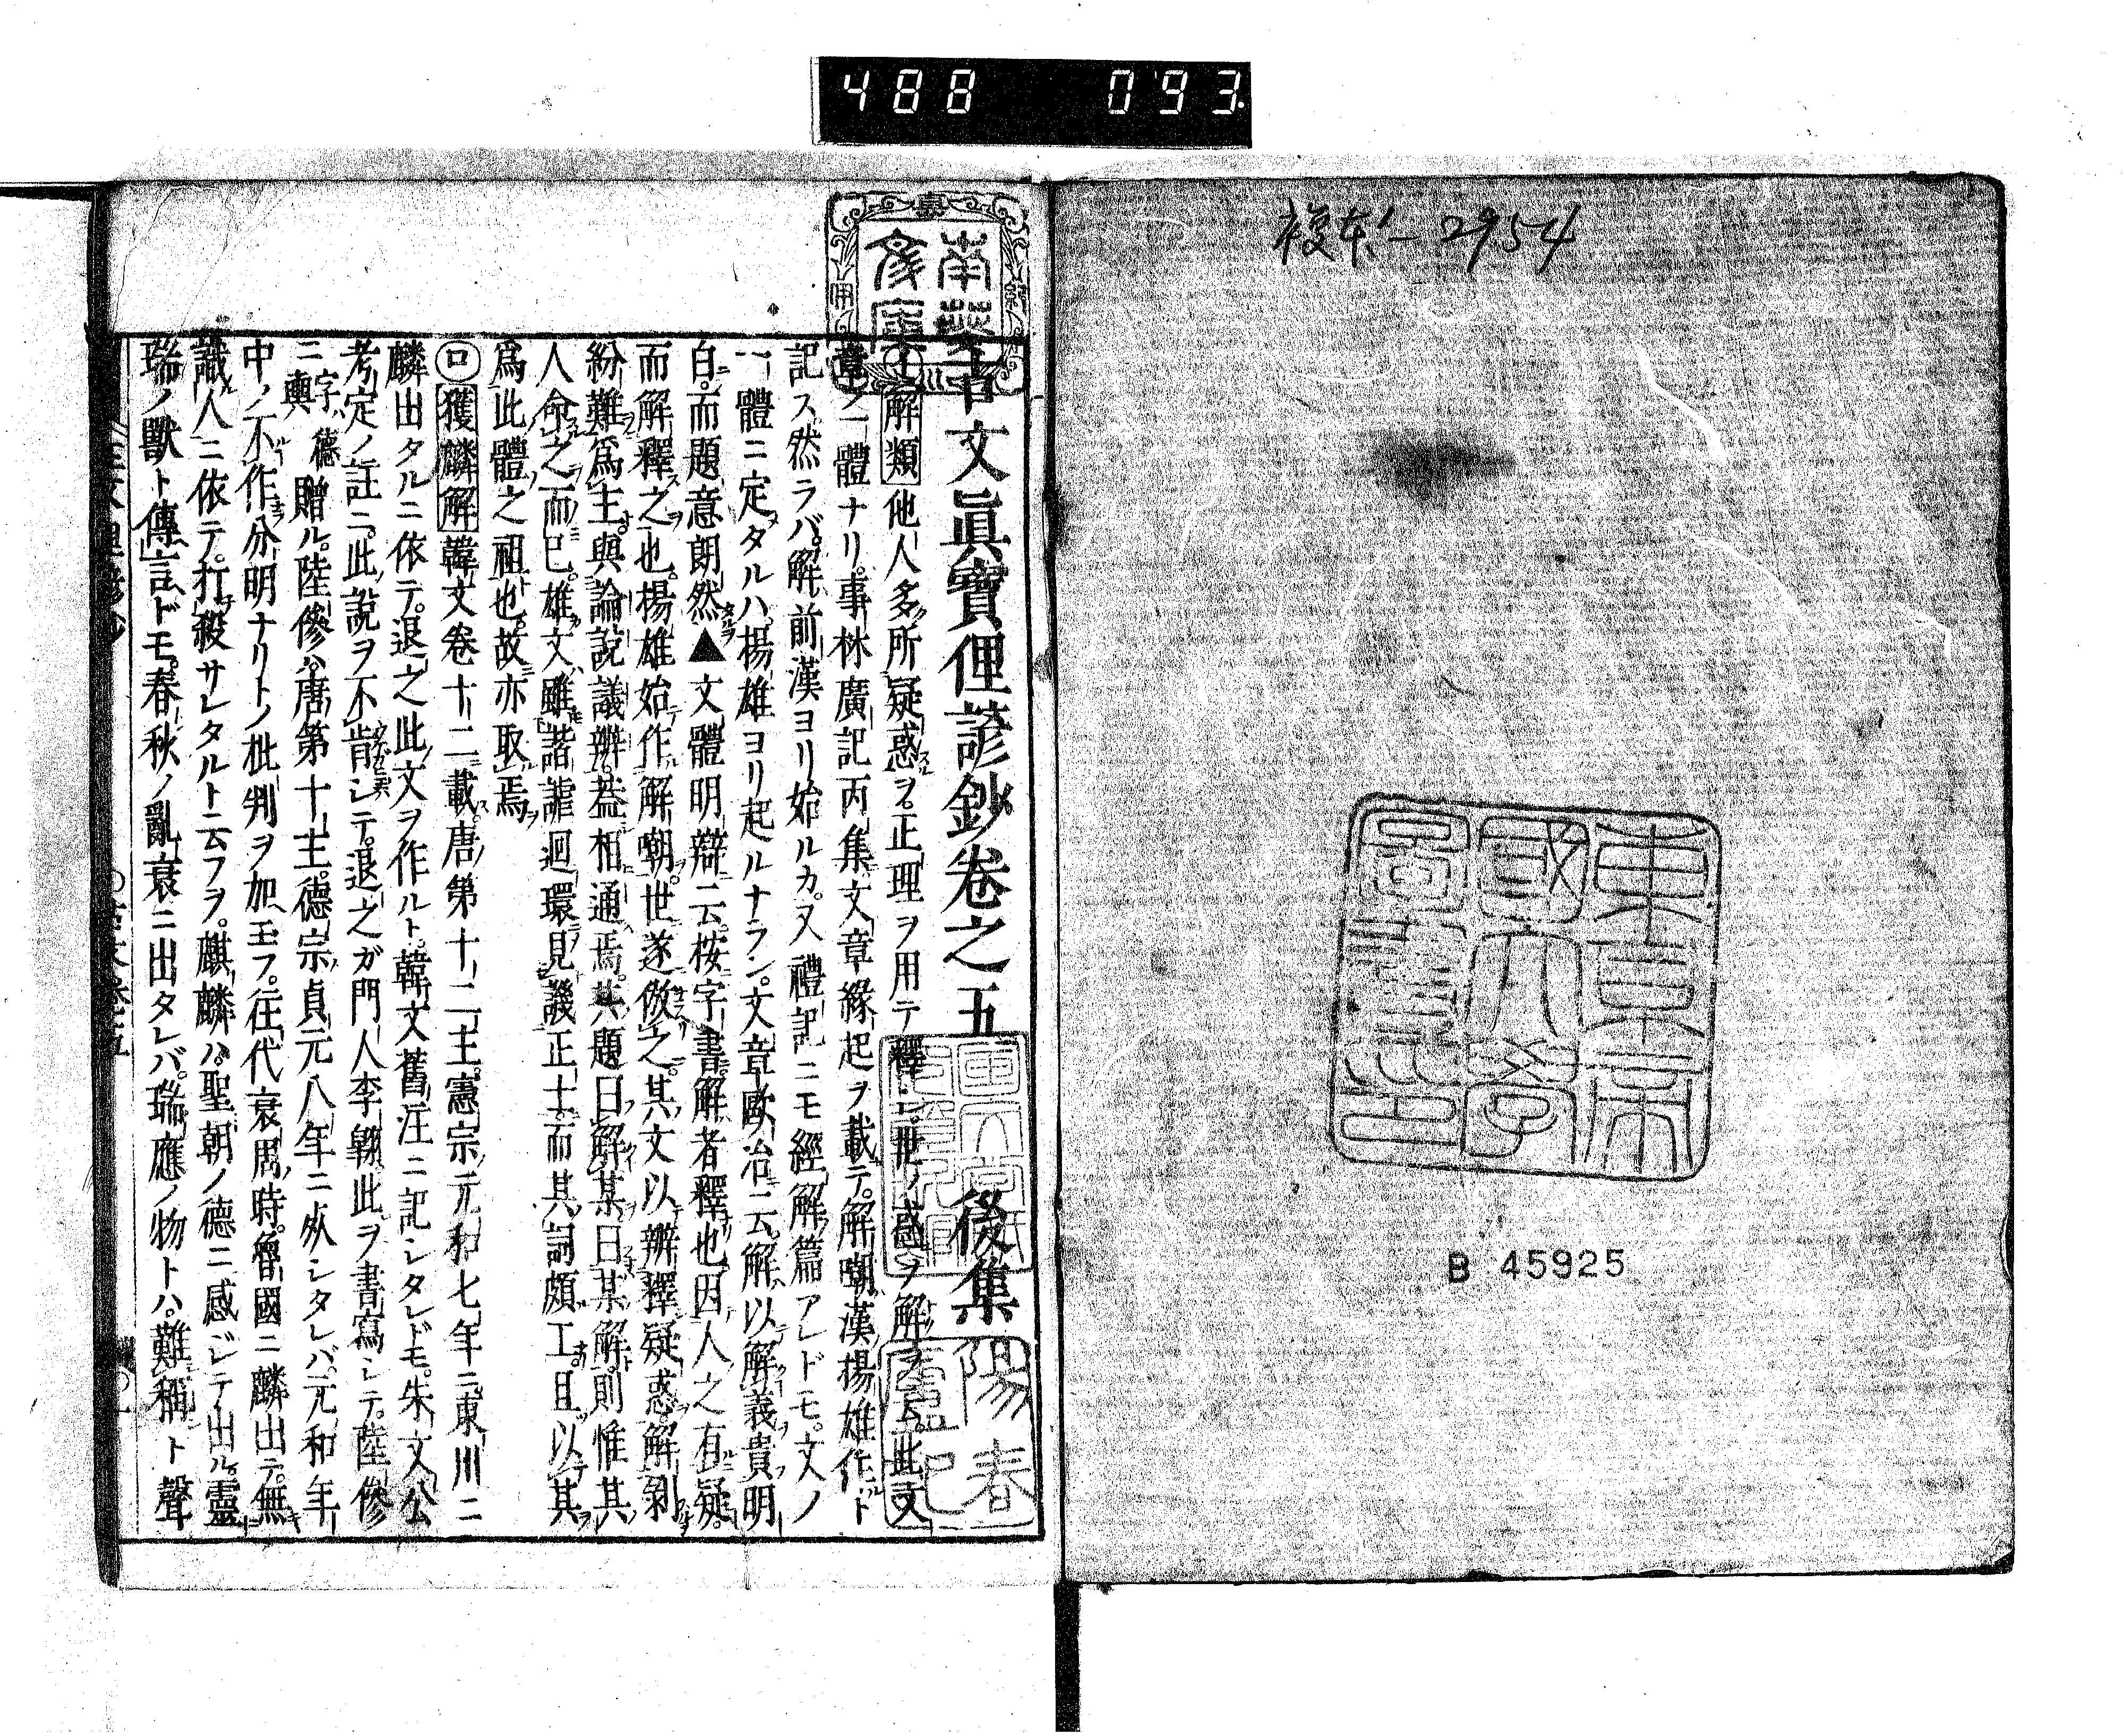 488 093
複本1-2954
東京帝
國大學
圖書印
B 45925
南葵
文庫
陽春
廬記
古文眞寶俚諺鈔卷之五 後集
解類 他人多所疑惑ヲ正理ヲ用テ釋シ世ノ惑ヲ解ヲ云此文
章ノ一體ナリ事林廣記丙集文章緣起ヲ載テ解嘲漢楊雄作ト
記ス然ラバ解前漢ヨリ始ルカ又禮記ニモ經解篇アレドモ文ノ
一體ニ定タルハ楊雄ヨリ起ルナラン文章歐冶云解以解義貴明
白而題意朗然▲文體明辯云按字書解者釋也因人之有疑
而解釋之也楊雄始作解嘲世遂倣之其文以辨釋疑惑解剝
紛難爲主與論說議辨蓋相通焉其題曰解某曰某解則惟其
人命之而已雄文雖諧謔迴環見譏正士而其詞頗工且以其
爲此體之祖也故亦取焉
獲麟解 韓文卷十二載唐第十二主憲宗元和七年ニ東川ニ
麟出タルニ依テ退之此文ヲ作ルト韓文舊注ニ記シタレドモ朱文公
考定ノ註ニ此說ヲ不肯シテ退之ガ門人李翺此ヲ書寫シテ陸傪
ニ字德輿贈ル陸傪ハ唐第十主德宗貞元八年ニ死シタレバ元和年
中ノ不作分明ナリトノ批判ヲ加玉フ往代衰周時魯國ニ麟出テ無
識人ニ依テ打殺サレタルト云フヲ麒麟ハ聖朝ノ德ニ感ジテ出ル靈
瑞ノ獸ト傳言ドモ春秋ノ亂衰ニ出タレバ瑞應ノ物トハ難稱ト聲